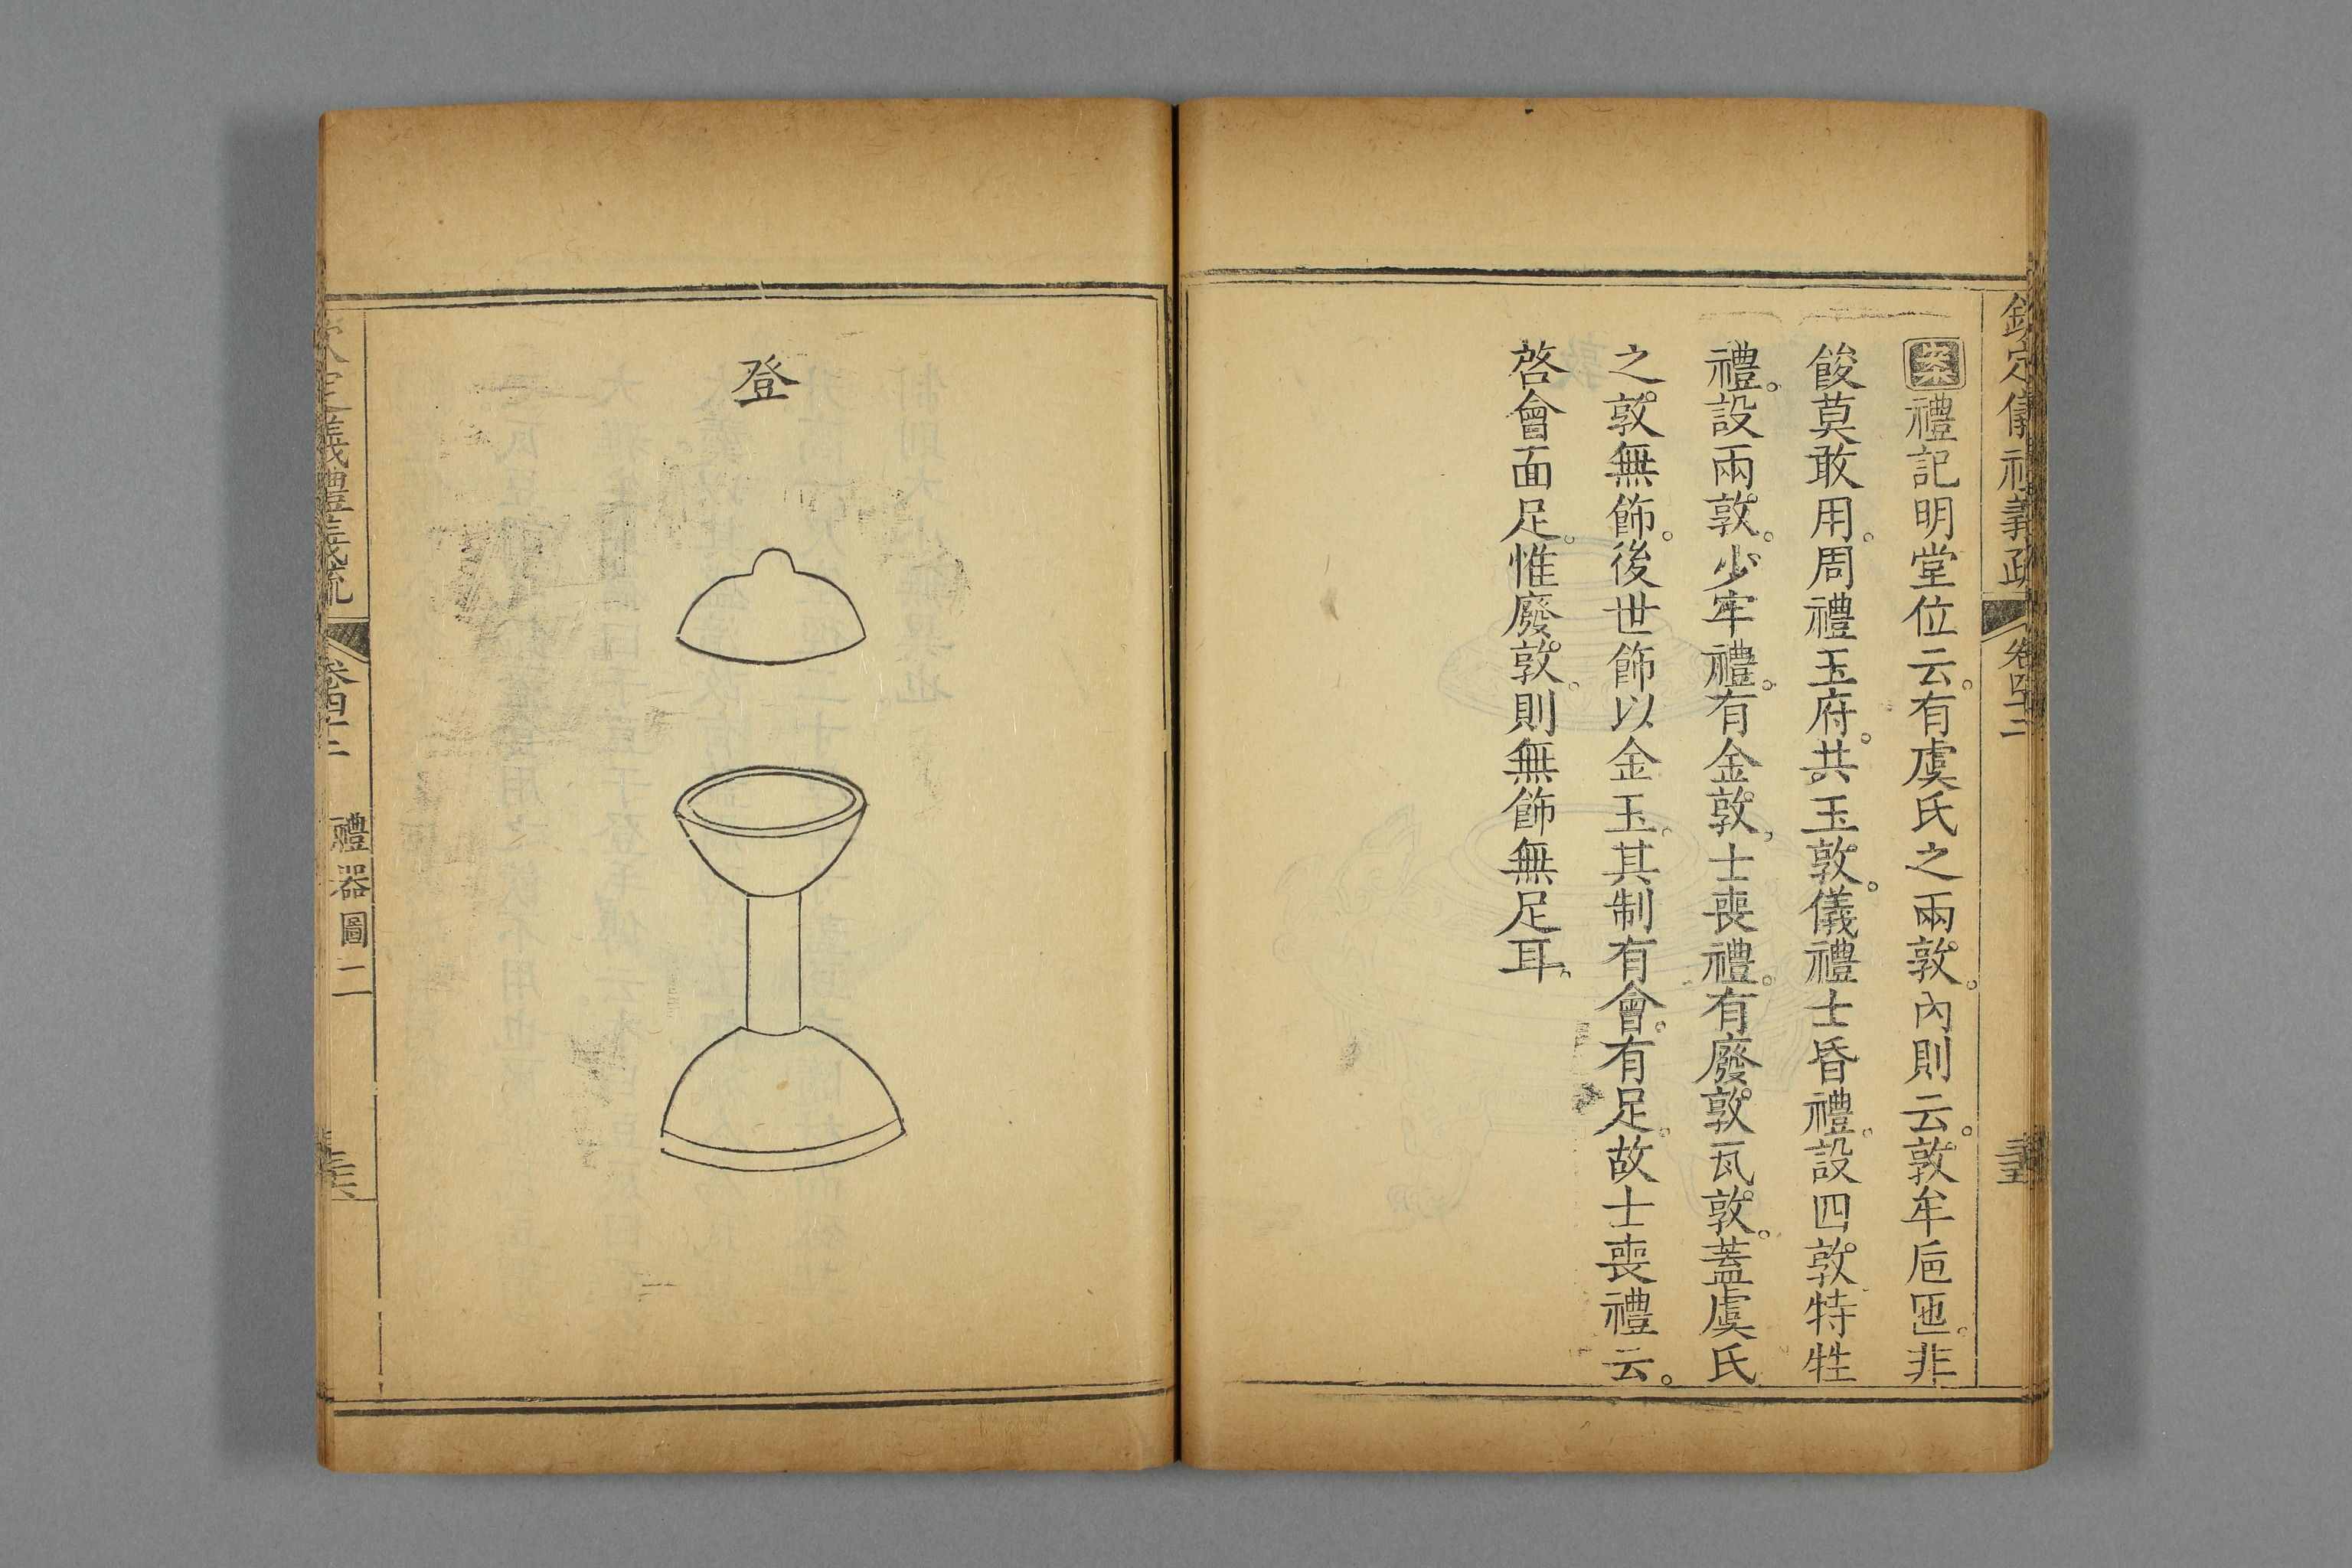 欽定儀禮義疏 卷四十二
案禮記明堂位云。有虞氏之兩敦。內則云。敦牟巵匜。非
餕莫敢用。周禮玉府。共玉敦。儀禮士昏禮。設四敦。特牲
禮。設兩敦。少牢禮。有金敦。士喪禮。有廢敦瓦敦。蓋虞氏
之敦無飾。後世飾以金玉。其制有會。有足。故士喪禮云。
啓會面足。惟廢敦。則無飾無足耳。
登
欽定儀禮義疏 卷四十二 禮器圖二